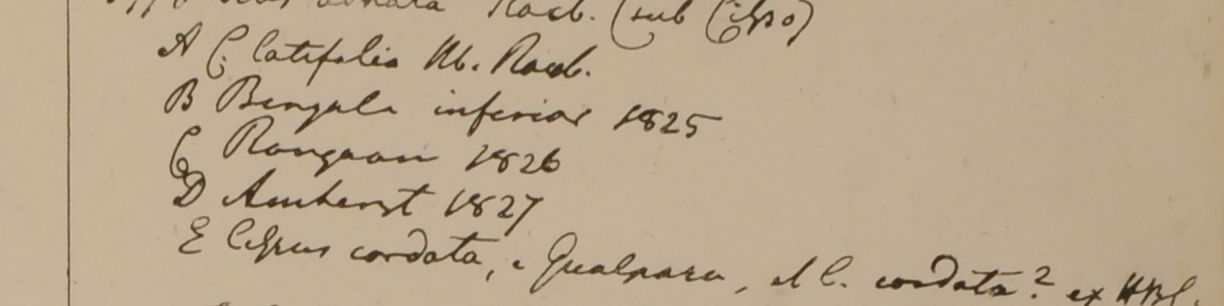 Roxb. (sub Cisso)
A C. latifolia Hb. Roxb.
B Bengala inferior 1825
C Rangoon 1826
D Amherst 1827
E Cissus cordata, e Gualpara, et C. cordata? ex HBC.